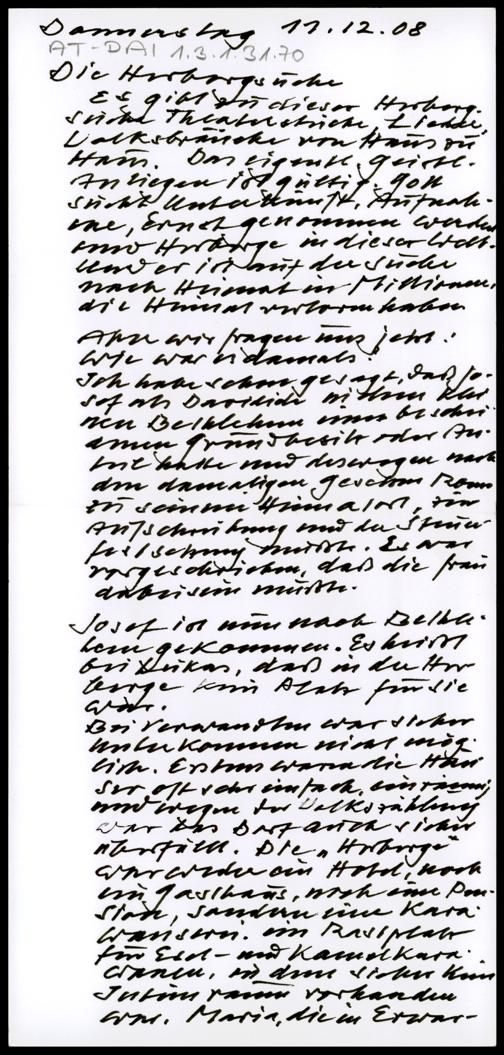 Donnerstag 11.12.08
AT-DAI 1.3.1.31.70
Die Herbergsuche
Es gibt zu dieser Herberg-
suche Theaterstücke, Lieder,
Volksbräuche von Haus zu
Haus. Das eigentl. geistl.
Anliegen ist gültig. Gott
sucht Unterkunft, Aufnah-
me, Ernst genommen werden
und Herberge in dieser Welt.
Und er ist auf der Suche
nach Heimat in Millionen,
die Heimat verloren haben
Aber wir fragen uns jetzt:
Wie war es damals?
Ich habe schon gesagt, daß Jo-
sef als Davidide in dem klei-
nen Bethlehem einen beschei-
denen Grundbesitz oder An-
teil hatte und deswegen nach
den damaligen Gesetzen Roms
zu seinem Heimatort, zur
Aufschreibung und der Steuer
festsetzung mußte. Es war
vorgeschrieben, daß die Frau
dabeisein mußte.
Josef ist nun nach Bethle-
hem gekommen. Es heißt
bei Lukas, daß in der Her-
berge kein Platz für sie
war.
Bei Verwandten war sicher
Unterkommen nicht mög-
lich. Erstens waren die Häu
ser oft sehr einfach, einräumig
und wegen der Volkszählung
war das Dorf auch sicher
überfüllt. Die „Herberge"
war weder ein Hotel, noch
ein Gasthaus, noch eine Pen-
sion, sondern eine Kara-
wanserei. ein Rastplatz
für Esel- und Kamelkara-
wanen, in dem sicher kein
Intimraum vorhanden
war. Maria, die in Erwar-